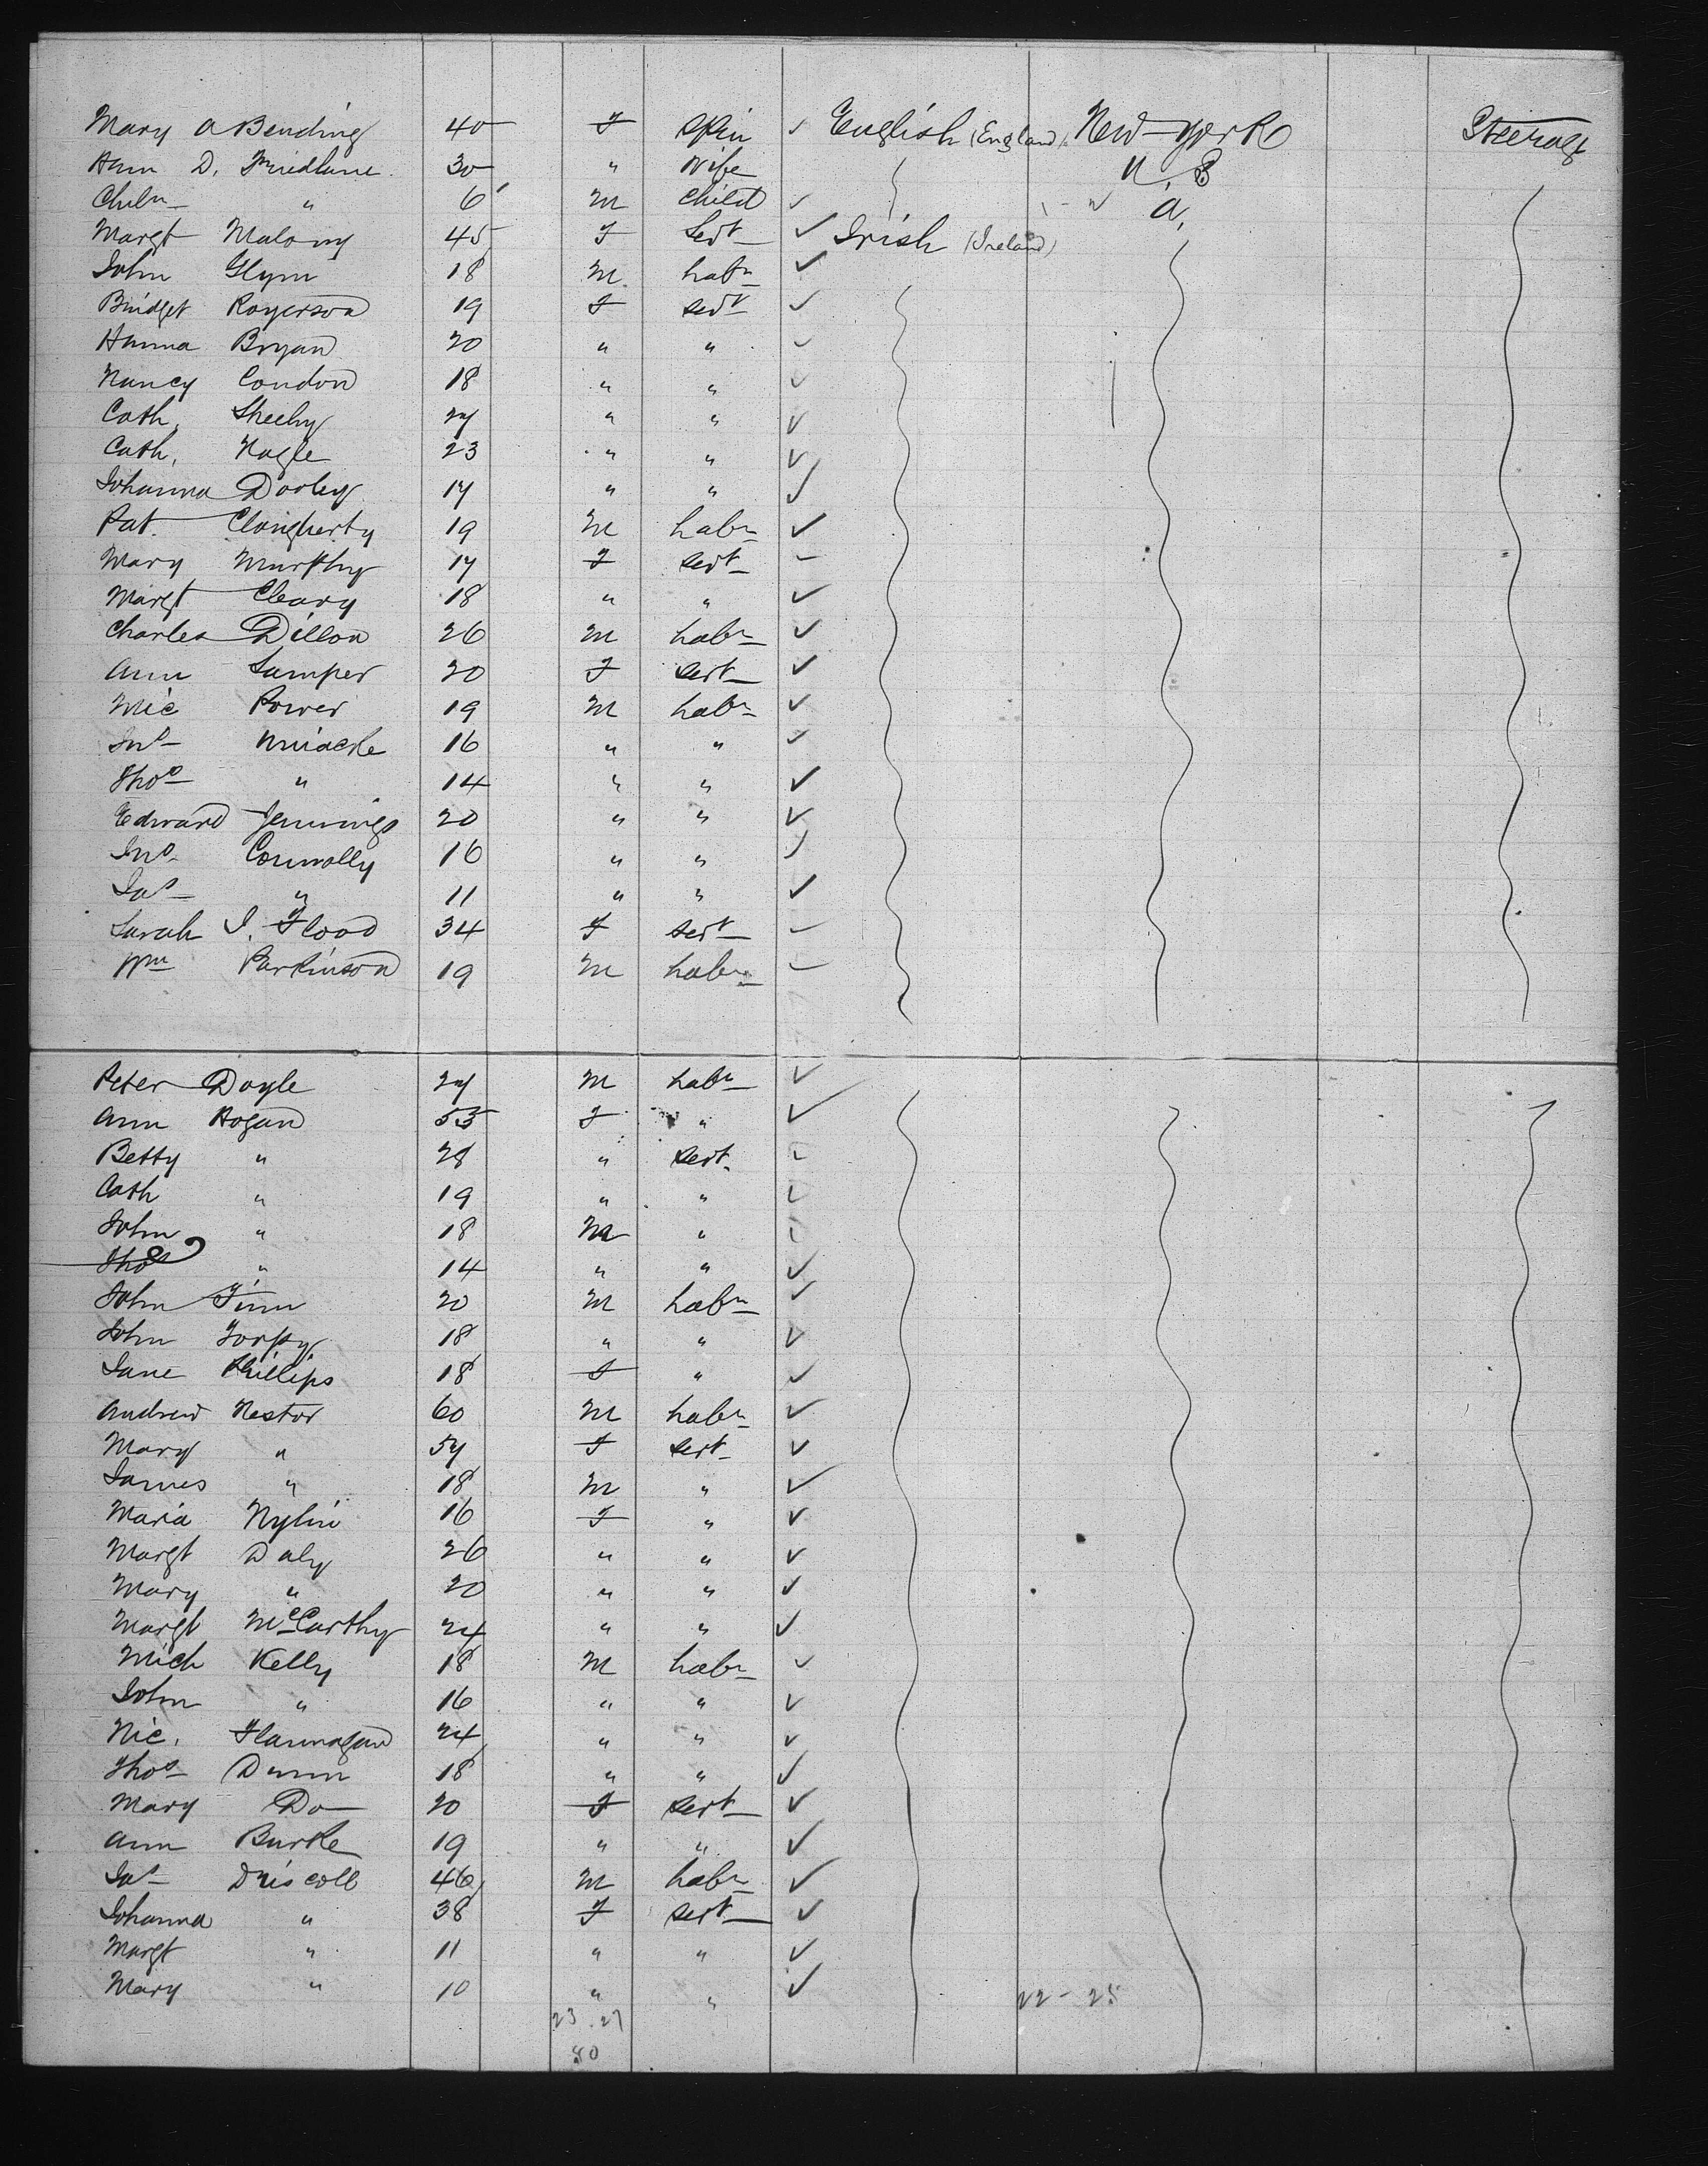 Mary A Bending 40 F Spin ✓ English (England) New-York Steerage
Ann D. 30 " Wife U.S
Chiln " 6 M Child ✓ A.
Margt Malony 45 F Sert ✓ Irish (Ireland)
John Glynn 18 M Labr ✓
Bridget Rogerson 19 F sert ✓
Hanna Bryan 20 " " ✓
Nancy Condon 18 " " ✓
Cath, Sheehy 27 " " ✓
Cath, Nagle 23 " " ✓
Johanna Dooley 17 " " ✓
Pat Clougherty 19 M Labr ✓
Mary Murphy 17 F sert -
Margt Cleary 18 " " ✓
Charles Dillon 26 M Labr ✓
Ann Samper 20 F sert ✓
Mic Power 19 M Labr ✓
Jno 16 " " ✓
Thos " 14 " " ✓
Edward Jennings 20 " " ✓
Jno Connolly 16 " " ✓
Jas " 11 " " ✓
Sarah J. Flood 34 F sert -
Wm Parkinson 19 M Labr -
Peter Doyle 27 M Labr ✓
Ann Hogan 53 F " ✓
Betty " 28 " sert ✓
Cath " 19 " " ✓
John " 18 M " ✓
Thos " 14 " " ✓
John Finn 20 M Labr ✓
John Torpy 18 " " ✓
Jane Phillips 18 F " ✓
Andrew Nestor 60 M Labr ✓
Mary " 57 F sert ✓
James " 18 M " ✓
Maria 16 F " ✓
Margt Daly 26 " " ✓
Mary " 20 " " ✓
Margt McCarthy 24 " " ✓
Mich Kelly 18 M Labr ✓
John " 16 " " ✓
Nic. Flannagan 24 " " ✓
Thos Dunn 18 " " ✓
Mary Do 20 F sert ✓
Ann Burke 19 " " ✓
Jas Driscoll 46 M Labr ✓
Johanna " 38 F sert ✓
Margt " 11 " " ✓
Mary " 10 " " ✓
22 - 25
23 . 27